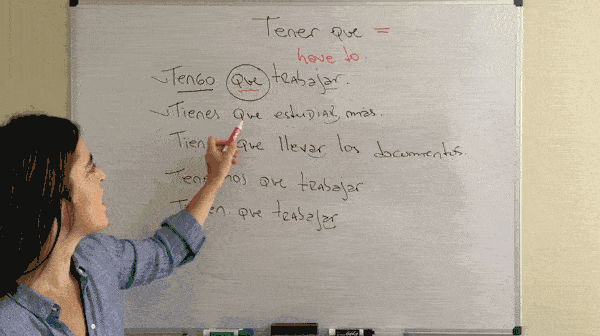 Tener que =
have to
Tengo que trabajar.
Tienes que estudiar mas.
que llevar los documentos.
Tenemos que trabajar
que trabajar